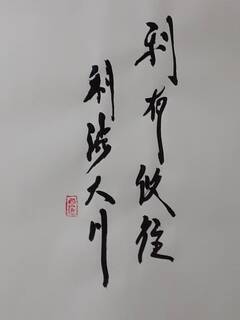 利有攸往
利涉大川